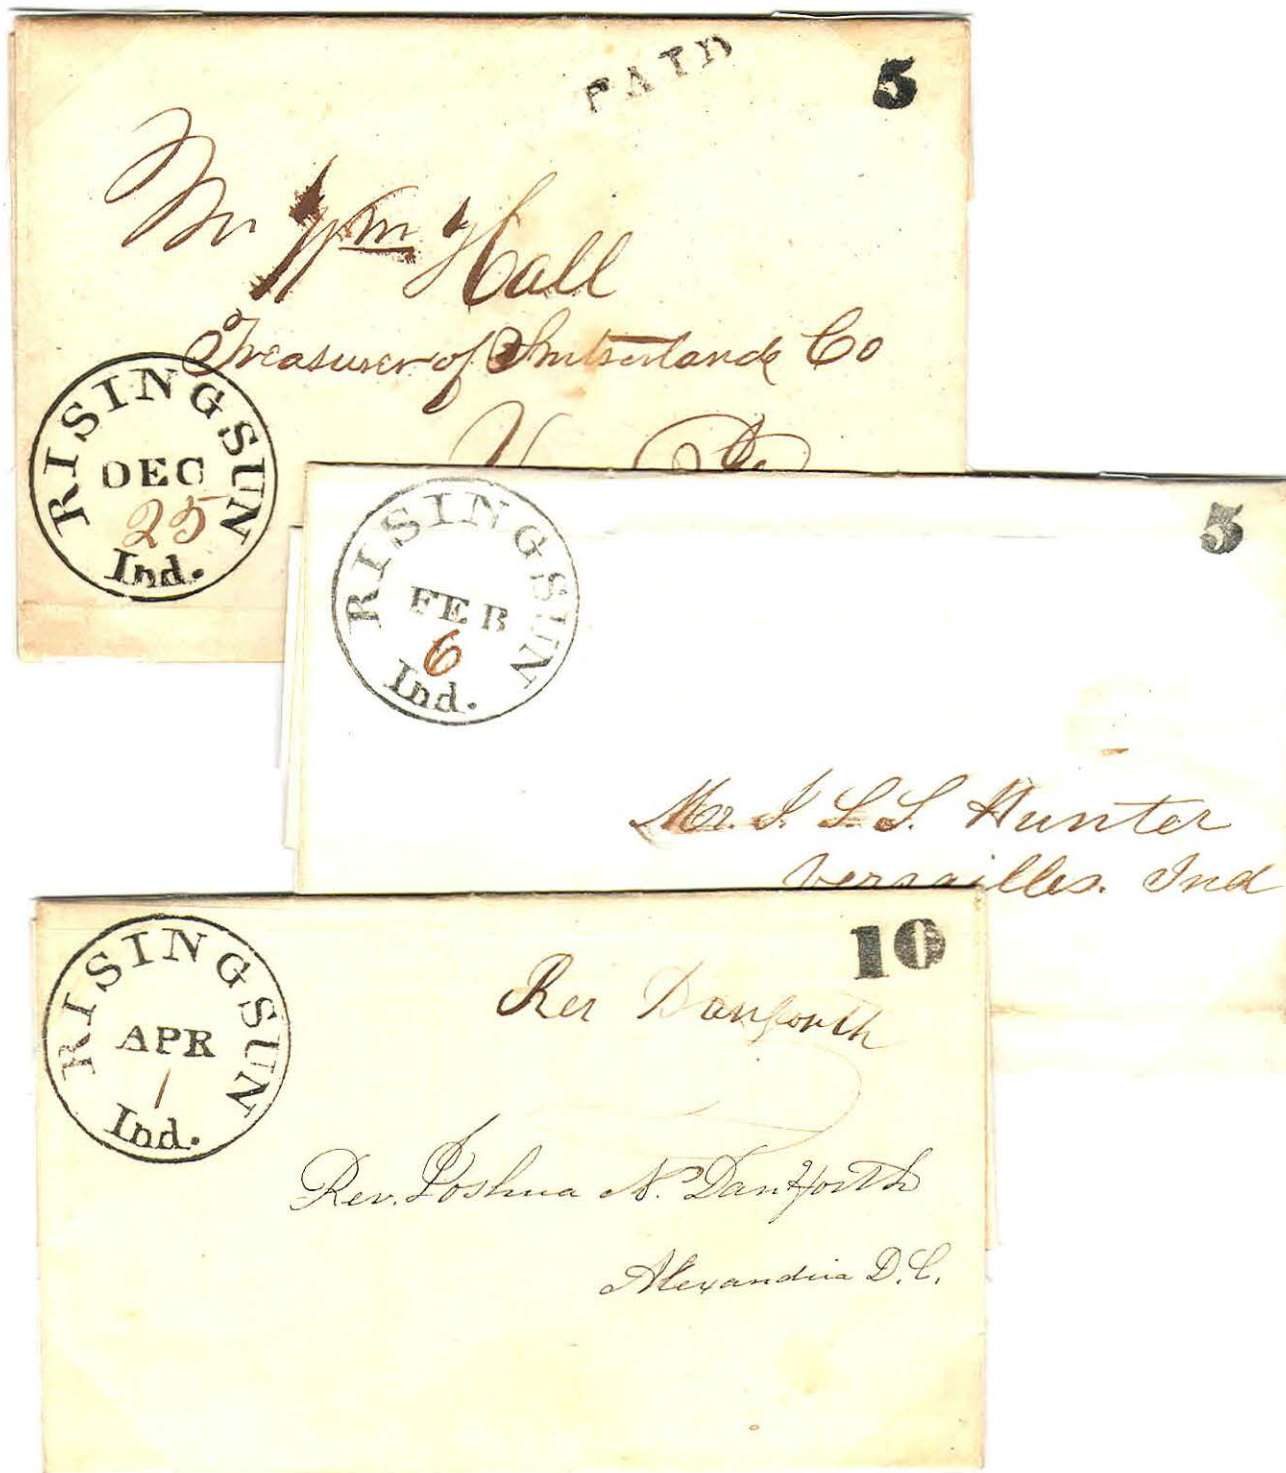 PAID
5
Mr Wm Hall
Treasurer of Switserland Co
RISINGSUN
DEC
25
Ind.
5
RISINGSUN
FEB
6
Ind.
Mr. J. L. S. Hunter
Versailles. Ind
10
RISINGSUN
APR
1
Ind.
Rev Danforth
Rev. Joshua N. Danforth
Alexandria D.C.